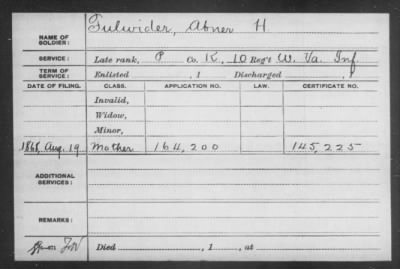 Fulwider, Abner H.
NAME OF SOLDIER:
SERVICE: Late rank, P Co. K, 10 Reg't W. Va. Inf.
TERM OF SERVICE: Enlisted , 1 Discharged , 1
DATE OF FILING. CLASS. APPLICATION NO. LAW. CERTIFICATE NO.
Invalid,
Widow,
Minor,
1868, Aug. 19 Mother 164,200 145,225
ADDITIONAL SERVICES:
REMARKS:
Died , 1 , at